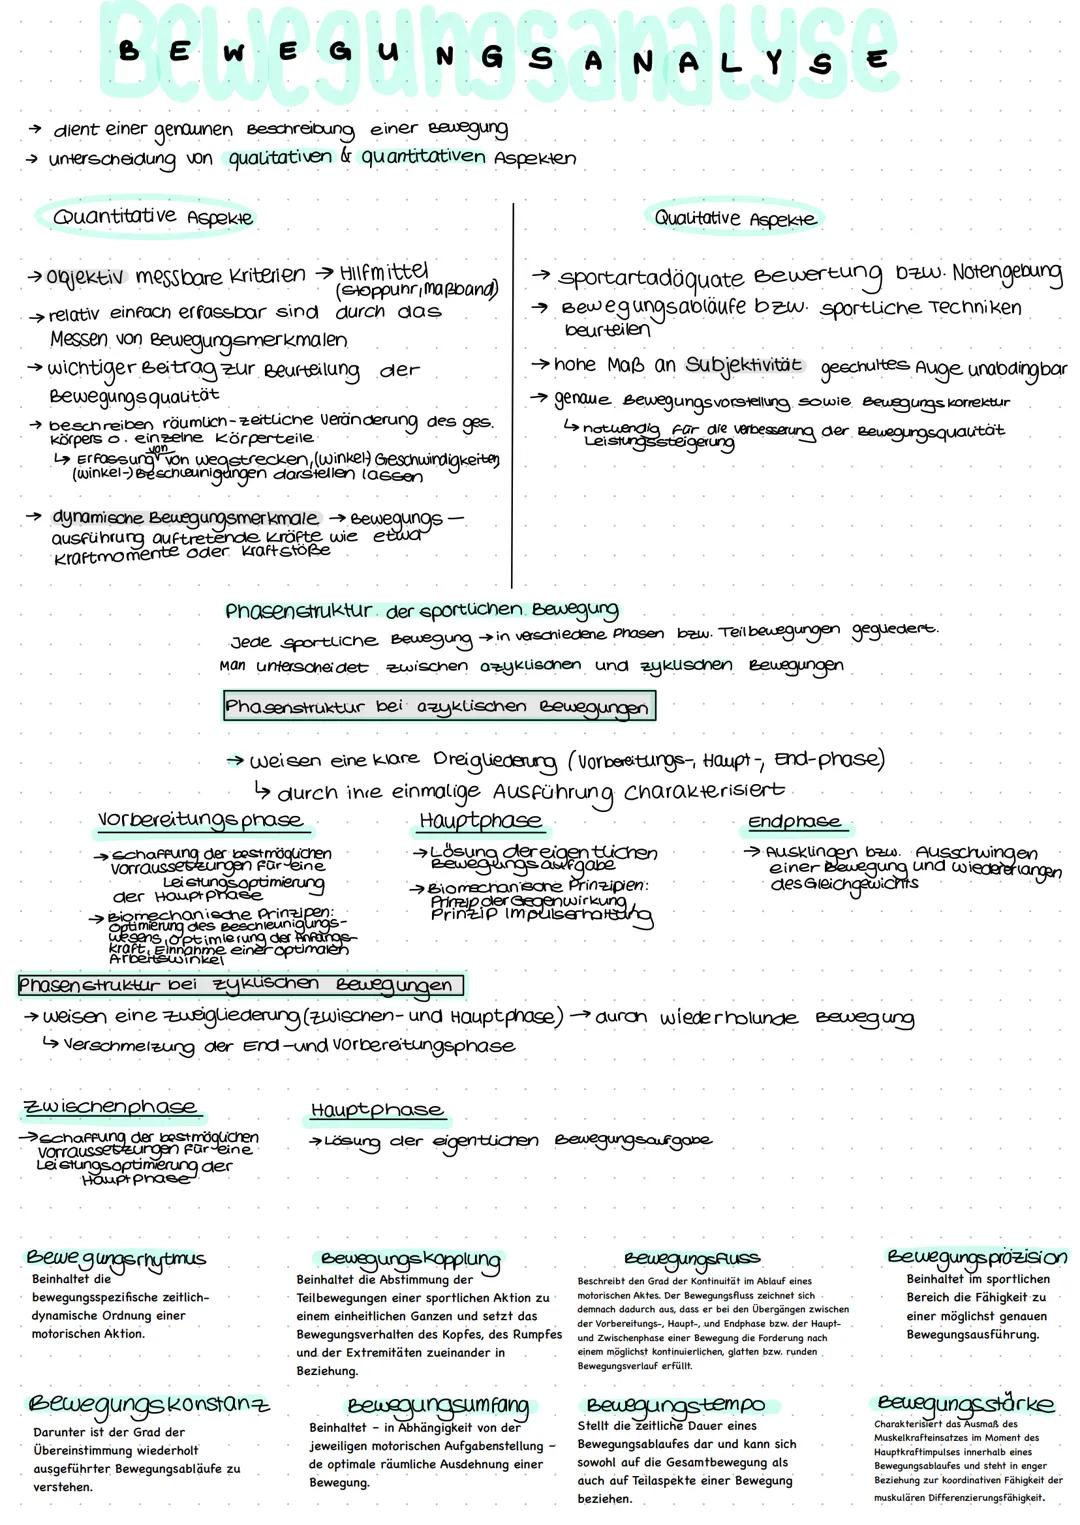 Bewegungsanalyse
BEWEGUNGSANALYSE
→ dient einer genaunen Beschreibung einer Bewegung
→ unterscheidung von qualitativen & quantitativen Aspekten
Quantitative Aspekte
→ objektiv messbare Kriterien → Hilfmittel
(stoppuhr, maßband)
→ relativ einfach erfassbar sind durch das
Messen von Bewegungsmerkmalen
→ wichtiger Beitrag zur Beurteilung der
Bewegungsqualität
→ beschreiben räumlich-zeitliche Veränderung des ges.
körpers o. einzelne Körperteile
von
↳ Erfassung von wegstrecken, (winkel-) Geschwindigkeiten
(winkel-) Beschleunigungen darstellen lassen
→ dynamische Bewegungsmerkmale → Bewegungs-
ausführung auftretende Kräfte wie etwa
Kraftmomente oder Kraftstöße
Qualitative Aspekte
→ sportartadäquate Bewertung bzw. Notengebung
→ Bewegungsabläufe bzw. sportliche Techniken
beurteilen
→ hohe Maß an Subjektivität geschultes Auge unabdingbar
→ genaue Bewegungsvorstellung sowie Bewegungskorrektur
↳ notwendig für die verbesserung der Bewegungsqualität
Leistungssteigerung
Phasenstruktur der sportlichen Bewegung
Jede sportliche Bewegung → in verschiedene Phasen bzw. Teilbewegungen gegliedert.
Man unterscheidet zwischen azyklischen und zyklischen Bewegungen
Phasenstruktur bei azyklischen Bewegungen
→ weisen eine klare Dreigliederung (Vorbereitungs-, Haupt-, End-phase)
↳ durch ihre einmalige Ausführung charakterisiert
Vorbereitungsphase
→ Schaffung der bestmöglichen
Vorraussetzungen für eine
Leistungsoptimierung
der Hauptphase
→ Biomechanische Prinzipen:
Optimierung des Beschleunigungs-
wesens, optimierung der Anfangs-
kraft, Einnahme einer optimalen
Arbeitswinkel
Hauptphase
→ Lösung der eigentlichen
Bewegungsaufgabe
→ Biomechanische Prinzipien:
Prinzip der Gegenwirkung,
Prinzip Impulserhaltung
Endphase
→ Ausklingen bzw. Ausschwingen
einer Bewegung und wiedererlangen
des Gleichgewichts
Phasenstruktur bei zyklischen Bewegungen
→ weisen eine zweigliederung (zwischen- und Hauptphase) → durch wiederholunde Bewegung
↳ Verschmelzung der End-und Vorbereitungsphase
Zwischenphase
→ Schaffung der bestmöglichen
Vorraussetzungen für eine
Leistungsoptimierung der
Hauptphase
Hauptphase
→ Lösung der eigentlichen Bewegungsaufgabe
Bewegungsrhytmus
Beinhaltet die
bewegungsspezifische zeitlich-
dynamische Ordnung einer
motorischen Aktion.
Bewegungskopplung
Beinhaltet die Abstimmung der
Teilbewegungen einer sportlichen Aktion zu
einem einheitlichen Ganzen und setzt das
Bewegungsverhalten des Kopfes, des Rumpfes
und der Extremitäten zueinander in
Beziehung.
Bewegungsfluss
Beschreibt den Grad der Kontinuität im Ablauf eines
motorischen Aktes. Der Bewegungsfluss zeichnet sich
demnach dadurch aus, dass er bei den Übergängen zwischen
der Vorbereitungs-, Haupt-, und Endphase bzw. der Haupt-
und Zwischenphase einer Bewegung die Forderung nach
einem möglichst kontinuierlichen, glatten bzw. runden
Bewegungsverlauf erfüllt.
Bewegungspräzision
Beinhaltet im sportlichen
Bereich die Fähigkeit zu
einer möglichst genauen
Bewegungsausführung.
Bewegungskonstanz
Darunter ist der Grad der
Übereinstimmung wiederholt
ausgeführter Bewegungsabläufe zu
verstehen.
Bewegungsumfang
Beinhaltet – in Abhängigkeit von der
jeweiligen motorischen Aufgabenstellung –
de optimale räumliche Ausdehnung einer
Bewegung.
Bewegungstempo
Stellt die zeitliche Dauer eines
Bewegungsablaufes dar und kann sich
sowohl auf die Gesamtbewegung als
auch auf Teilaspekte einer Bewegung
beziehen.
Bewegungsstärke
Charakterisiert das Ausmaß des
Muskelkrafteinsatzes im Moment des
Hauptkraftimpulses innerhalb eines
Bewegungsablaufes und steht in enger
Beziehung zur koordinativen Fähigkeit der
muskulären Differenzierungsfähigkeit.